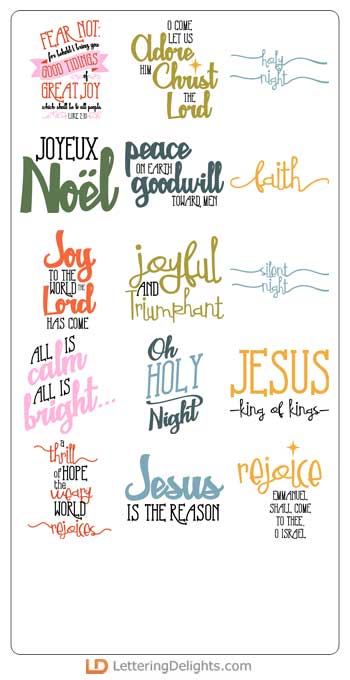 FEAR NOT:
for behold I bring you
GOOD TIDINGS
of
GREAT JOY
which shall be to all people.
LUKE 2:10
O COME
LET US
Adore
HIM Christ
THE
Lord
holy
night
JOYEUX
Noël
peace
ON EARTH
goodwill
TOWARD MEN
faith
Joy
TO THE
WORLD THE
Lord
HAS COME
joyful
AND
Triumphant
silent
night
ALL IS
calm
ALL IS
bright...
Oh
HOLY
Night
JESUS
-king of kings-
a
thrill
OF HOPE
the
weary
WORLD
rejoices
Jesus
IS THE REASON
rejoice
EMMANUEL
SHALL COME
TO THEE,
O ISRAEL
LD LetteringDelights.com